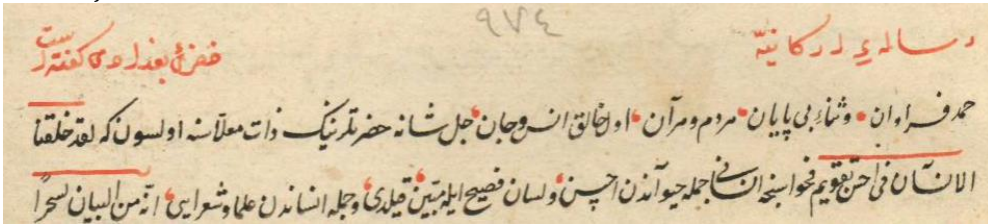 ٩٧٤
رساله‌ء اردكانيه
فضلئ بغدادى گفته‌است
حمد فراوان و ثناء بى پايان مردم و مرآن اول خالق انس و جان جل شانه حضرتلرينك ذات معلاسنه اولسون كه لقد خلقنا
الانسان فى احسن تقويم فحواسنجه انسانى جمله حيواندن احسن و لسان فصيح ايله مبين قيلدى و جمله انساندن علما و شعرايى انه من البيان لسحرا